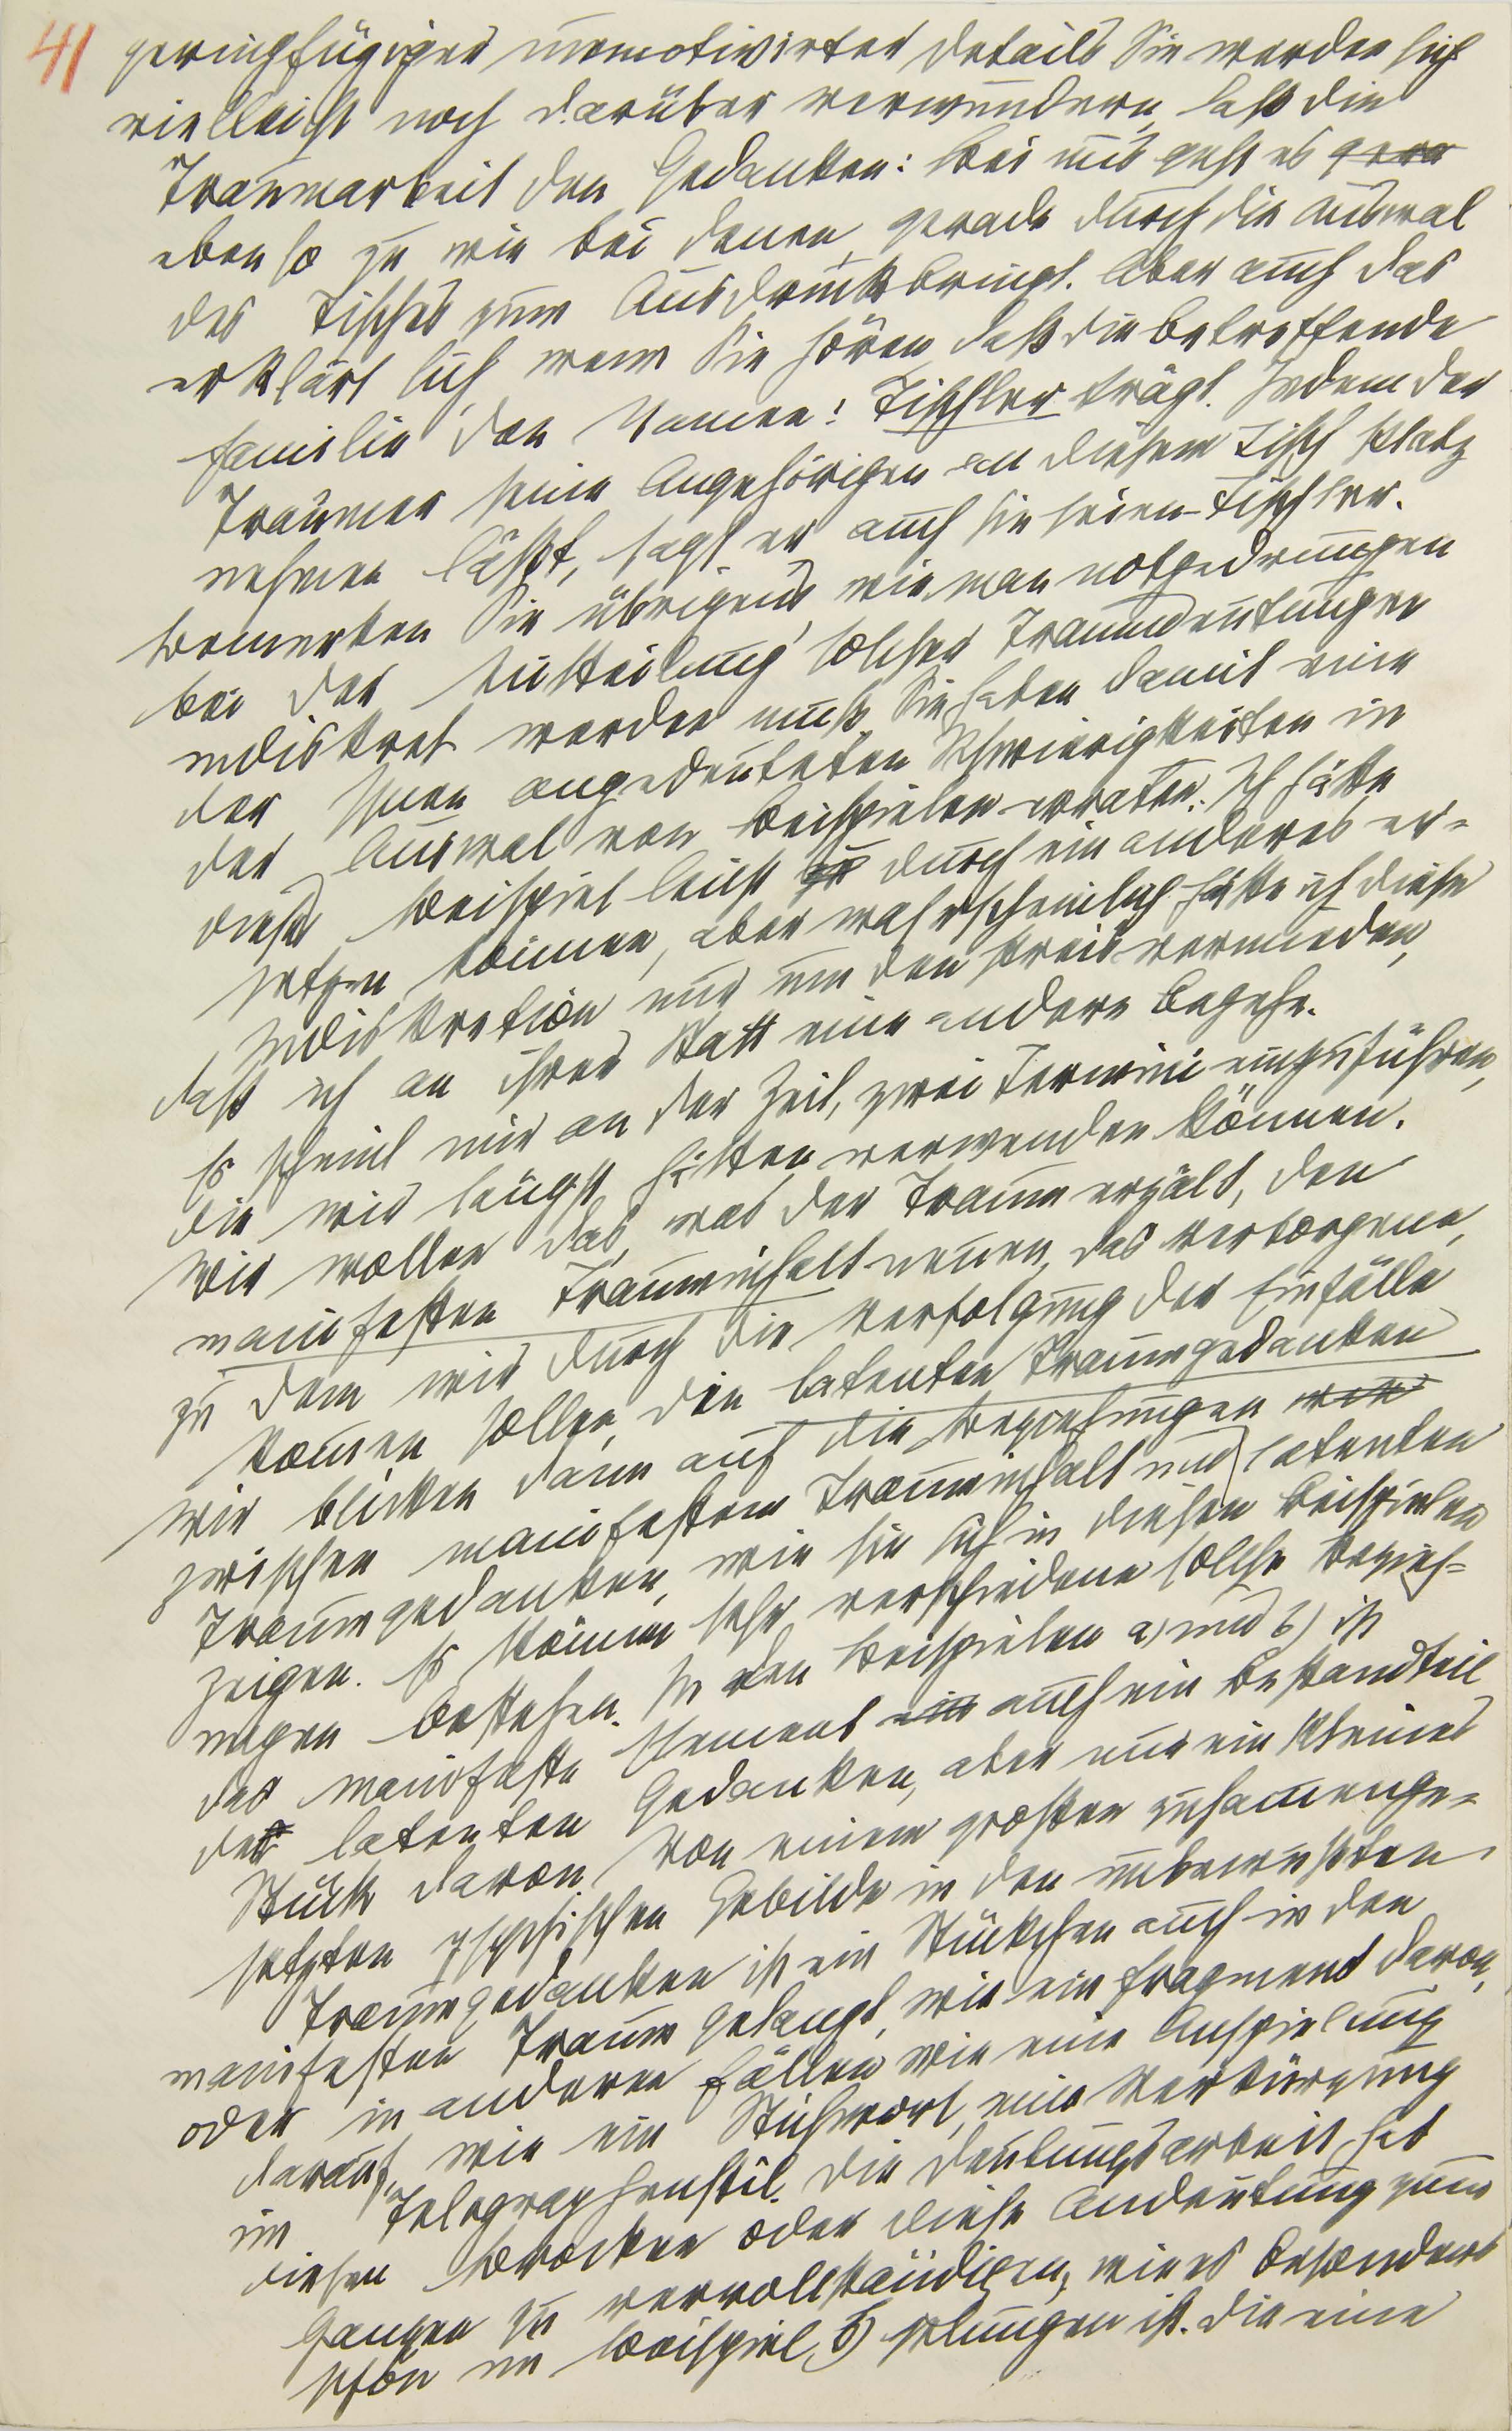 41
geringfügiger unmotivirter Details. Sie werden sich
vielleicht noch darüber verwundern, daß die
Traumarbeit den Gedanken: Bei uns geht es gera
ebenso zu wie bei denen, gerade durch die Auswal
des Tisches zum Ausdruck bringt. Aber auch das
erklärt sich, wenn Sie hören, daß die betreffende
Familie den Namen: Tischler trägt. Indem der
Träumer seine Angehörigen an diesem Tisch Platz
nehmen läßt, sagt er, auch sie seien Tischler.
Bemerken Sie übrigens, wie man notgedrungen
bei der Mitteilung solcher Traumdeutungen
indiskret werden muß. Sie haben damit eine
der Ihnen angedeuteten Schwierigkeiten in
der Auswal von Beispielen erraten. Ich hätte
dieses Beispiel leicht zu durch ein anderes er=
setzen können, aber wahrscheinlich hätte ich diese
Indiskretion nur um den Preis vermieden,
daß ich an ihrer Statt eine andere begehe.
Es scheint mir an der Zeit, zwei Termini einzuführen,
die wir längst hätten verwenden können.
Wir wollen das, was der Traum erzält, den
manifesten Trauminhalt nennen, das Verborgene,
zu dem wir durch die Verfolgung der Einfälle
kommen sollen, die latenten Traumgedanken
Wir blicken dann auf die Beziehungen
zwischen manifestem Trauminhalt und latenten
Traumgedanken, wie sie sich in diesen Beispielen
zeigen. Es können sehr verschiedene solche Bezieh=
ungen bestehen. In den Beispielen a) und b) ist
das manifeste Element ein auch ein Bestandteil
der latenten Gedanken, aber nur ein kleines
Stück davon. Von einem großen zusammenge=
setzten psychischen Gebilde in den unbewußten
Traumgedanken ist ein Stückchen auch in den
manifesten Traum gelangt, wie ein Fragment davon,
oder in anderen Fällen wie eine Anspielung
darauf, wie ein Stichwort, eine Verkürzung
im Telegraphenstil. Die Deutungsarbeit hat
diesen Brocken oder diese Andeutung zum
Ganzen zu vervollständigen, wie es besonders
schön im Beispiel b) gelungen ist. Die eine